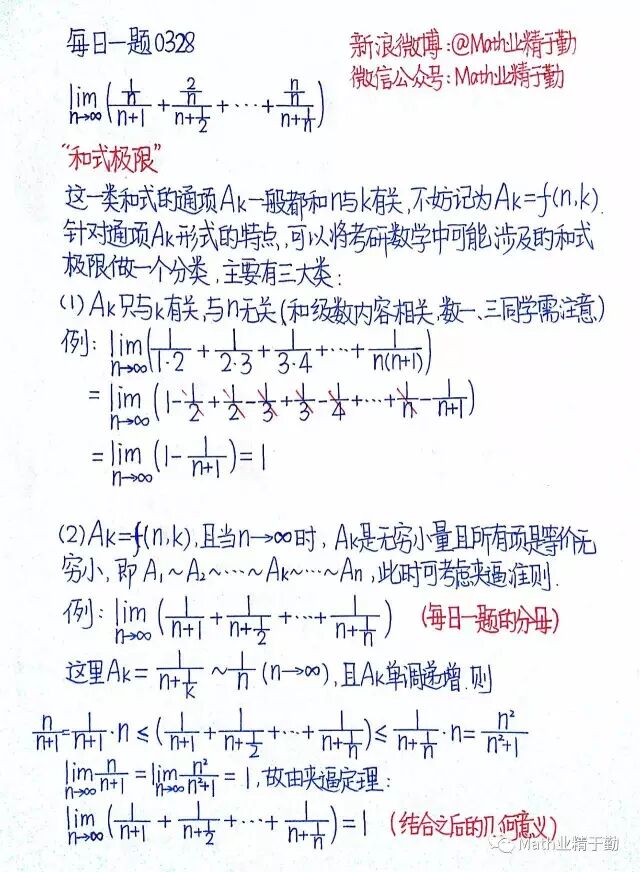 每日一题0328
新浪微博:@Math业精于勤
微信公众号:Math业精于勤
lim_{n→∞} ( (1/n)/(n+1) + (2/n)/(n+1/2) + ⋯ + (n/n)/(n+1/n) )
“和式极限”
这一类和式的通项Ak一般都和n与k有关,不妨记为Ak=f(n,k).
针对通项Ak形式的特点,可以将考研数学中可能涉及的和式
极限做一个分类,主要有三大类:
(1) Ak只与k有关,与n无关(和级数内容相关,数一、三同学需注意)
例: lim_{n→∞} ( 1/(1·2) + 1/(2·3) + 1/(3·4) + ⋯ + 1/(n(n+1)) )
= lim_{n→∞} ( 1 - 1/2 + 1/2 - 1/3 + 1/3 - 1/4 + ⋯ + 1/n - 1/(n+1) )
= lim_{n→∞} ( 1 - 1/(n+1) ) = 1
(2) Ak=f(n,k),且当n→∞时, Ak是无穷小量且所有项是等价无
穷小,即 A1~A2~⋯~Ak~⋯~An ,此时可考虑夹逼准则.
例: lim_{n→∞} ( 1/(n+1) + 1/(n+1/2) + ⋯ + 1/(n+1/n) ) (每日一题的分母)
这里Ak= 1/(n+1/k) ~ 1/n (n→∞),且Ak单调递增.则
n/(n+1) = 1/(n+1)·n ≤ ( 1/(n+1) + 1/(n+1/2) + ⋯ + 1/(n+1/n) ) ≤ 1/(n+1/n)·n = n²/(n²+1)
lim_{n→∞} n/(n+1) = lim_{n→∞} n²/(n²+1) = 1 ,故由夹逼定理:
lim_{n→∞} ( 1/(n+1) + 1/(n+1/2) + ⋯ + 1/(n+1/n) ) = 1 (结合之后的几何意义)
Math业精于勤